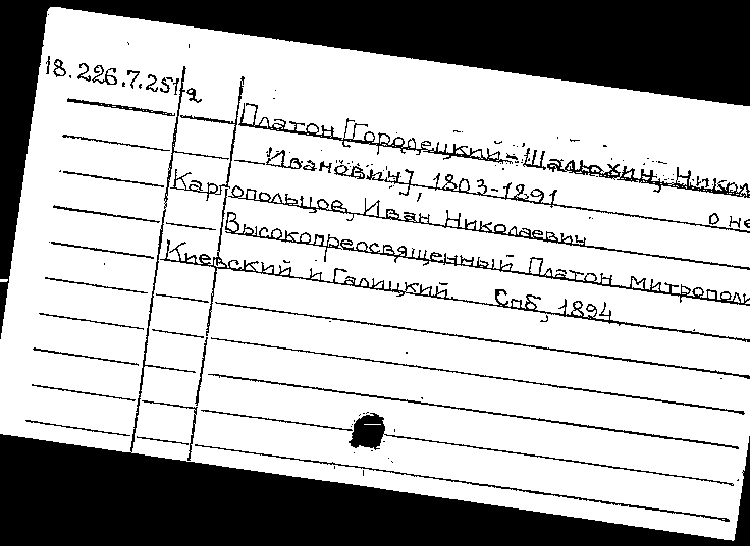 18.226.7.251а
Платон [Городецкий-Шалюхин, Никол
Иванович], 1803-1891
о не
Каргопольцов, Иван Николаевич
Высокопреосвященный Платон митрополи
Киевский и Галицкий. Спб, 1894.